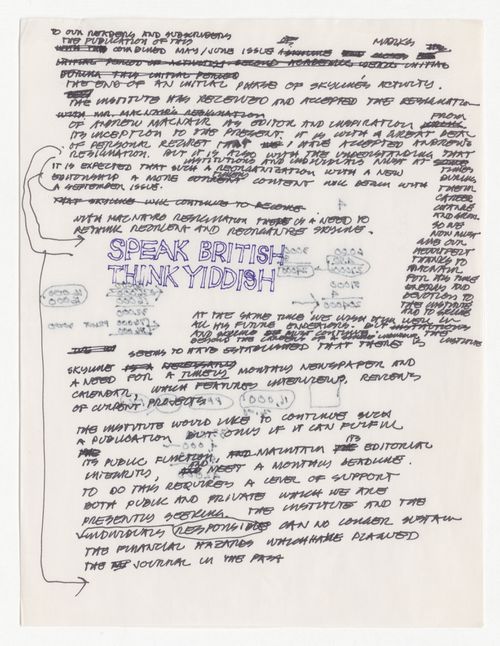 TO OUR READERS AND SUBSCRIBERS
THE PUBLICATION OF THIS
COMBINED MAY/JUNE ISSUE MARKS
THE END OF AN INITIAL PHASE OF SKYLINE'S ACTIVITY.
THE INSTITUTE HAS RECEIVED AND ACCEPTED THE RESIGNATION
WITH MR. MACNAIR'S RESIGNATION
OF ANDREW MACNAIR AS EDITOR AND INSPIRATION FROM
ITS INCEPTION TO THE PRESENT. IT IS WITH A GREAT DEAL
OF PERSONAL REGRET THAT I HAVE ACCEPTED ANDREW'S
RESIGNATION. BUT IT IS ALSO WITH THE UNDERSTANDING THAT
INSTITUTIONS AND INDIVIDUALS MUST AT
TIMES
DURING
THEIR
CAREER
CHANGE
AND GROW.
SO WE
NOW MUST
GIVE OUR
THANKS TO
MACNAIR
FOR HIS TIME
ENERGY AND
DEVOTION TO
THE INSTITUTE
AND TO SKYLINE
IT IS EXPECTED THAT SUCH A REORGANIZATION WITH A NEW
EDITORSHIP A MORE CONTENT WILL BEGIN WITH
A SEPTEMBER ISSUE.
THAT SKYLINE WILL CONTINUE TO BECOME
WITH MACNAIR'S RESIGNATION THERE IS A NEED TO
RETHINK REORIENT AND REORGANIZE SKYLINE.
SPEAK BRITISH
THINK YIDDISH
AT THE SAME TIME WE WISH HIM WELL IN
ALL HIS FUTURE ENDEAVORS. BUT INSTITUTIONS
AND SKYLINE MUST CONTINUE
BEYOND THE CAREERS OF A SINGLE INDIVIDUAL. THE
INSTITUTE
SEEMS TO HAVE ESTABLISHED THAT THERE IS
SKYLINE IS A NECESSARY
A NEED FOR A TIMELY MONTHLY NEWSPAPER AND
CALENDAR, WHICH FEATURES INTERVIEWS, REVIEWS
OF CURRENT PROJECTS
THE INSTITUTE WOULD LIKE TO CONTINUE SUCH
A PUBLICATION BUT ONLY IF IT CAN FULFILL
ITS PUBLIC FUNCTION, AND MAINTAIN ITS EDITORIAL
INTEGRITY, AND MEET A MONTHLY DEADLINE.
TO DO THIS REQUIRES A LEVEL OF SUPPORT
BOTH PUBLIC AND PRIVATE WHICH WE ARE
PRESENTLY SEEKING. THE INSTITUTE AND THE
INDIVIDUALS RESPONSIBLE CAN NO LONGER SUSTAIN
THE FINANCIAL HAZARDS WHICH HAVE PLAGUED
THE JOURNAL IN THE PAST